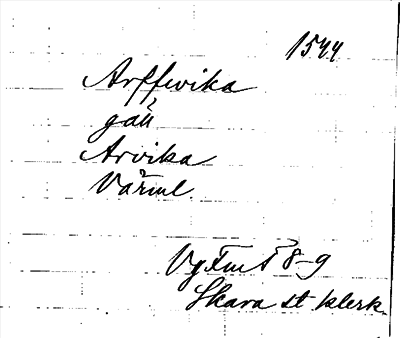 1544
Arffwika
gäll
Arvika
Värml.
Vg Fm T 8-9
Skara st klerk.